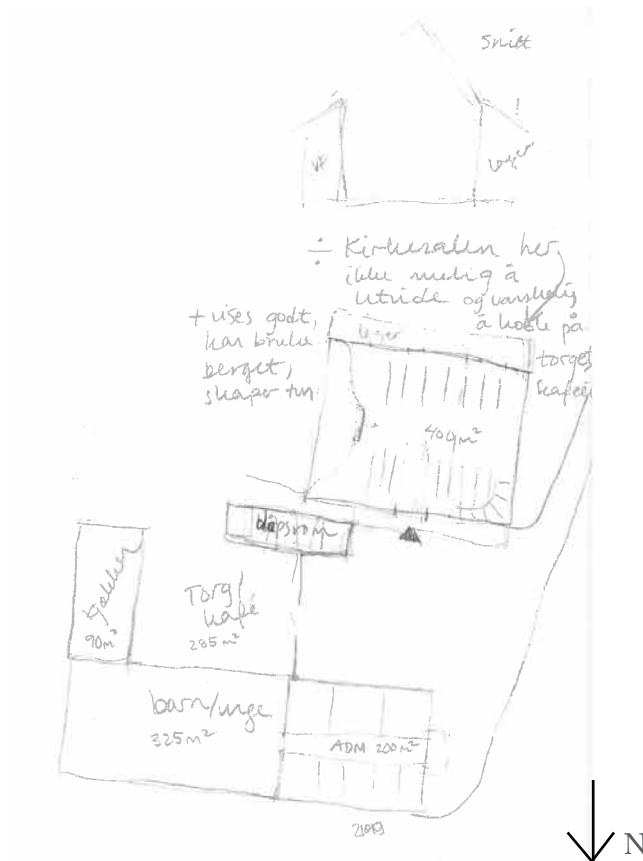 snitt
lager
÷ Kirkesalen her,
ikke mulig å
utvide og vanskelig
å koble på
torget
kafeen
+ vises godt,
kan bruke
berget,
skaper tun
lager
400m²
dåpsrom
kjøkken
90m²
Torg/
kafé
285m²
barn/unge
325m²
ADM 200m²
N